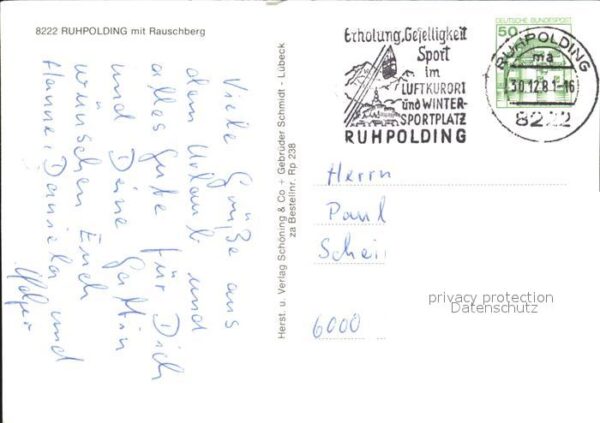 8222 RUHPOLDING mit Rauschberg
Viele Grüße aus
dem Urlaub und
alles Gute für Dich
und Deine Gattin
wünschen Euch
Hanne, Daniela und
Holger
Herst. u. Verlag Schöning & Co + Gebrüder Schmidt - Lübeck
za Bestellnr. Rp 238
Erholung, Geselligkeit
Sport
im
LUFTKURORT
und WINTER-
SPORTPLATZ
RUHPOLDING
DEUTSCHE BUNDESPOST
50
RUHPOLDING
ma
30.12.81-16
8222
Herrn
Paul
Schei
6000
privacy protection
Datenschutz